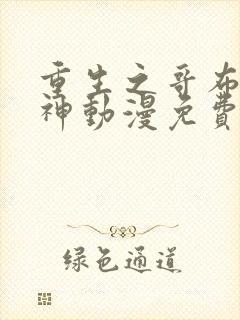 重生之哥布
神動漫免費
綠色通道